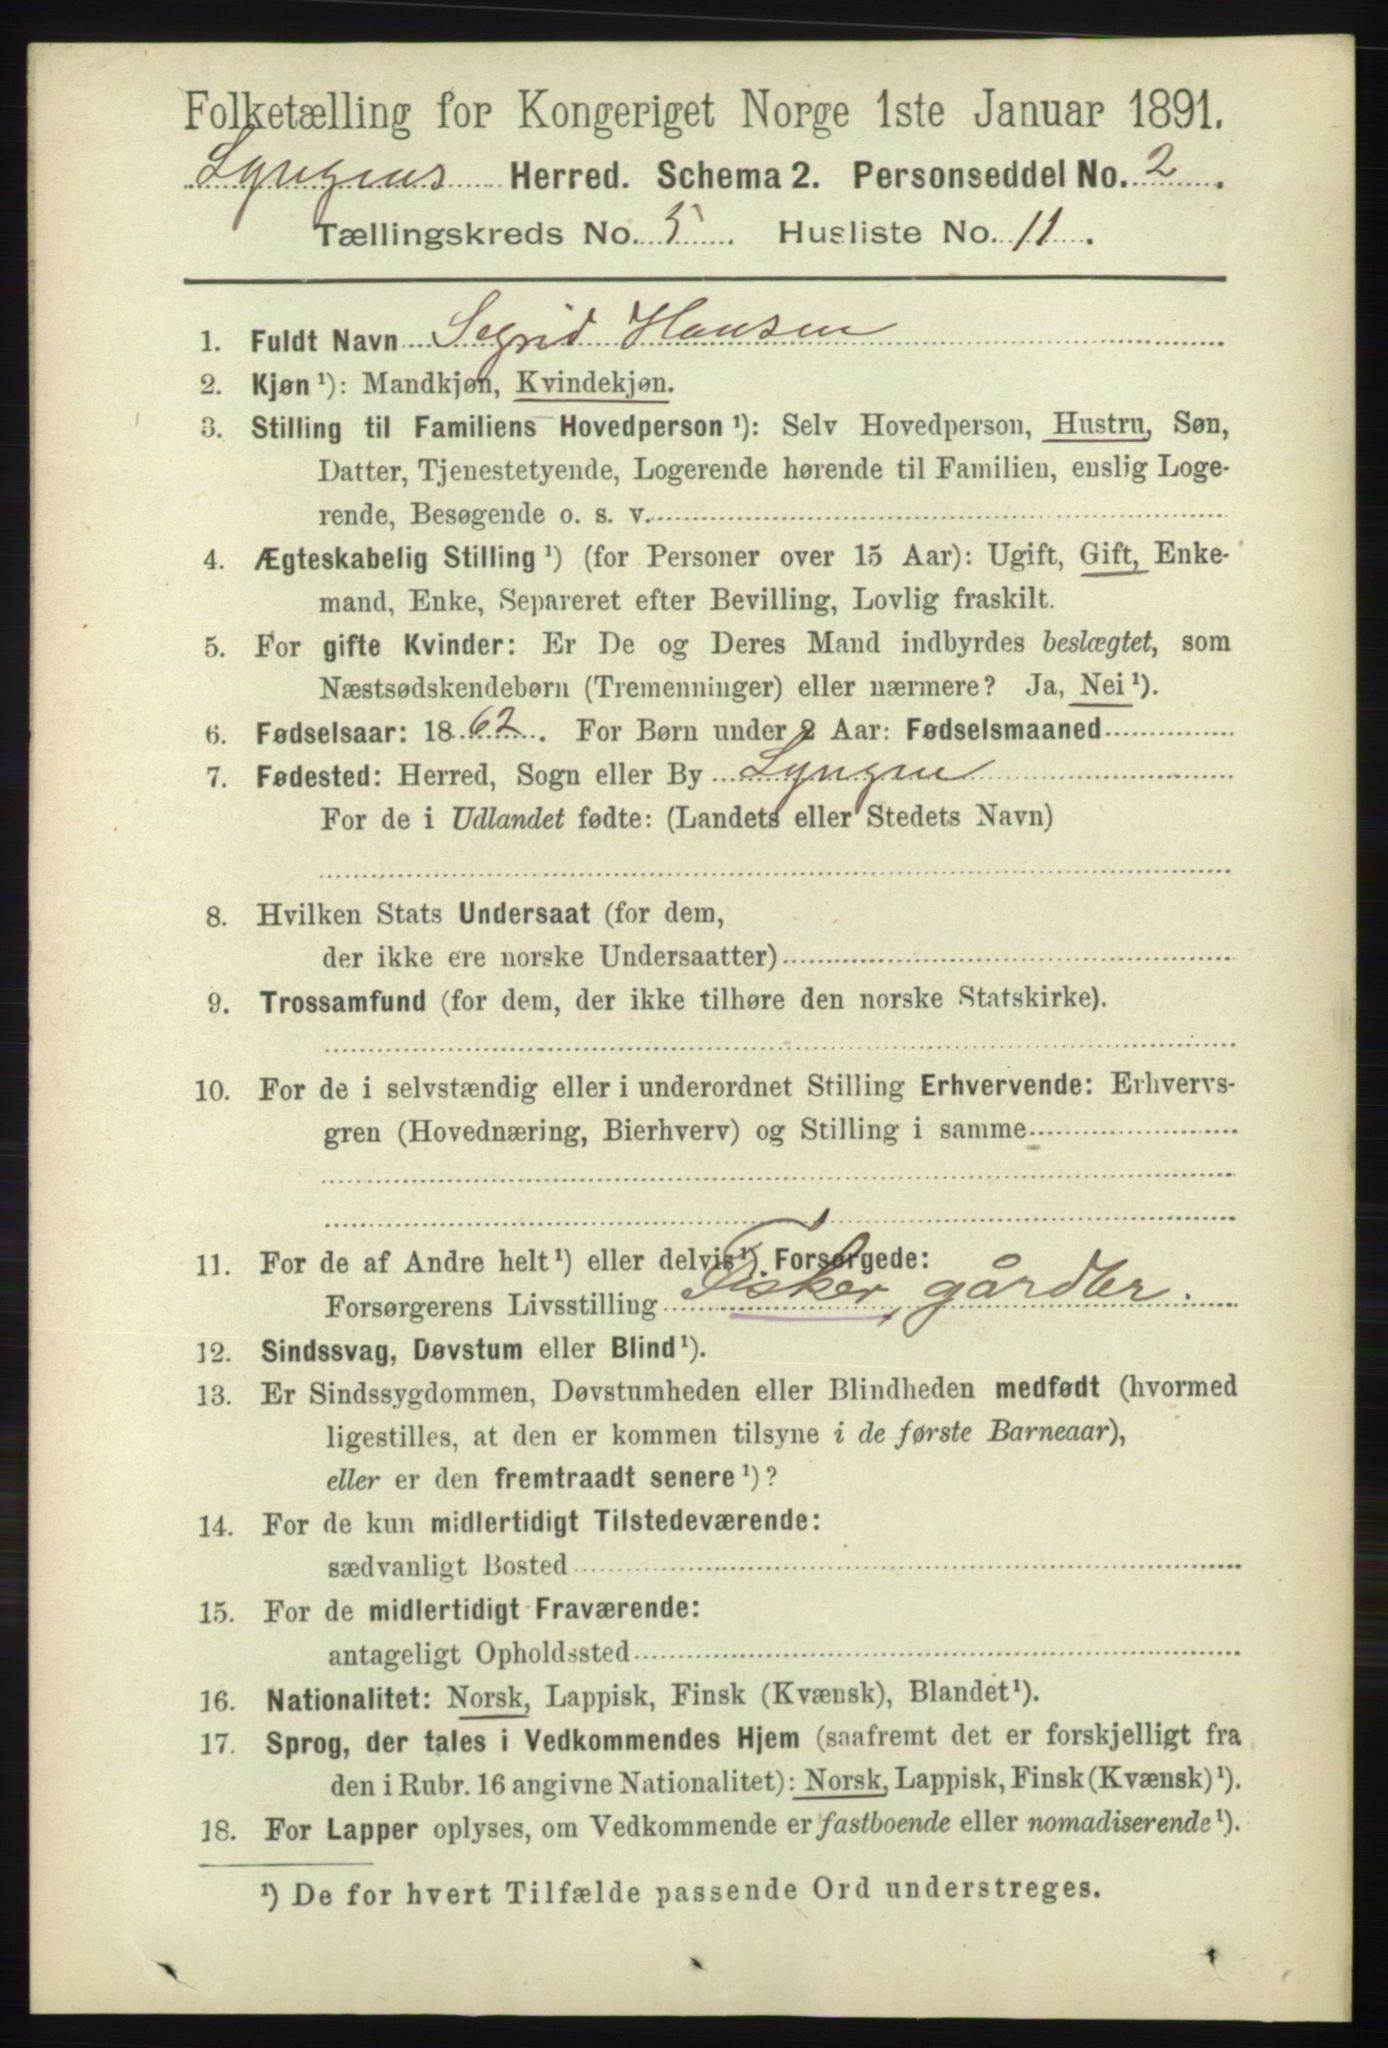 Folketælling for Kongeriget Norge 1ste Januar 1891.
Lyngens Herred. Schema 2. Personseddel No. 2.
Tællingskreds No. 5. Husliste No. 11.
1. Fuldt Navn Segrid Hansen
2. Kjøn ¹): Mandkjøn, Kvindekjøn.
3. Stilling til Familiens Hovedperson ¹): Selv Hovedperson, Hustru, Søn,
Datter, Tjenestetyende, Logerende hørende til Familien, enslig Loge-
rende, Besøgende o. s. v.
4. Ægteskabelig Stilling ¹) (for Personer over 15 Aar): Ugift, Gift, Enke-
mand, Enke, Separeret efter Bevilling, Lovlig fraskilt.
5. For gifte Kvinder: Er De og Deres Mand indbyrdes beslægtet, som
Næstsødskendebørn (Tremenninger) eller nærmere? Ja, Nei ¹).
6. Fødselsaar: 1862. For Børn under 2 Aar: Fødselsmaaned
7. Fødested: Herred, Sogn eller By Lyngen
For de i Udlandet fødte: (Landets eller Stedets Navn)
8. Hvilken Stats Undersaat (for dem,
der ikke ere norske Undersaatter)
9. Trossamfund (for dem, der ikke tilhøre den norske Statskirke).
10. For de i selvstændig eller i underordnet Stilling Erhvervende: Erhvervs-
gren (Hovednæring, Bierhverv) og Stilling i samme
11. For de af Andre helt ¹) eller delvis ¹) Forsørgede:
Forsørgerens Livsstilling Fisker, gårdbr.
12. Sindssvag, Døvstum eller Blind ¹).
13. Er Sindssygdommen, Døvstumheden eller Blindheden medfødt (hvormed
ligestilles, at den er kommen tilsyne i de første Barneaar),
eller er den fremtraadt senere ¹)?
14. For de kun midlertidigt Tilstedeværende:
sædvanligt Bosted
15. For de midlertidigt Fraværende:
antageligt Opholdssted
16. Nationalitet: Norsk, Lappisk, Finsk (Kvænsk), Blandet ¹).
17. Sprog, der tales i Vedkommendes Hjem (saafremt det er forskjelligt fra
den i Rubr. 16 angivne Nationalitet): Norsk, Lappisk, Finsk (Kvænsk) ¹).
18. For Lapper oplyses, om Vedkommende er fastboende eller nomadiserende ¹).
¹) De for hvert Tilfælde passende Ord understreges.